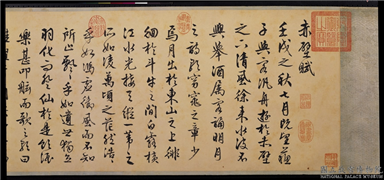 赤壁賦
壬戌之秋七月既望蘇
子與客汎舟遊於赤壁
之下清風徐來水波不
興舉酒屬客誦明月
之詩歌窈窕之章少
焉月出於東山之上徘
徊於斗牛之間白露橫
江水光接天縱一葦之
所如凌萬頃之茫然浩
乎如馮虛御風而不知
所止飄乎如遺世獨立
羽化而登仙於是飲酒
樂甚叩舷而歌之歌曰
NATIONAL PALACE MUSEUM